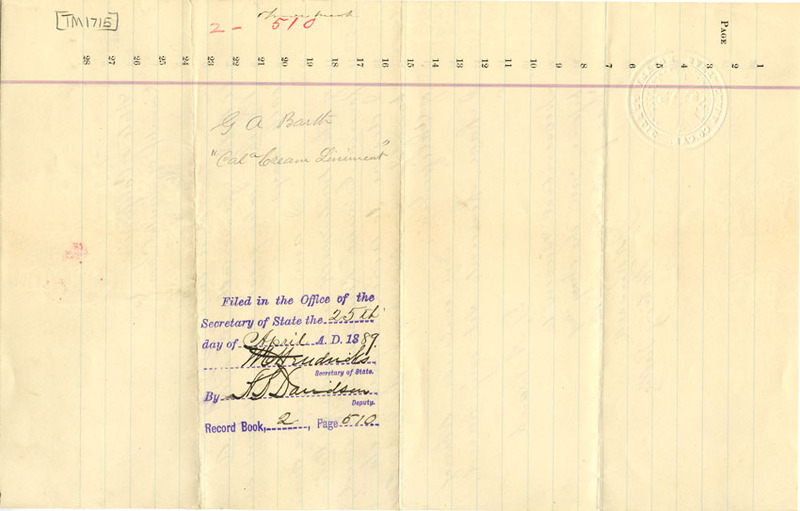 [TM1715]
2 - 510
PAGE
1
2
3
4
5
6
7
8
9
10
11
12
13
14
15
16
17
18
19
20
21
22
23
24
25
26
27
28
G A Barth
"Cal a Cream Liniment"
Filed in the Office of the
Secretary of State the 25th
day of April A. D. 1889.
W C Hendricks
Secretary of State.
By A. S. Davidson
Deputy.
Record Book, 2, Page 510